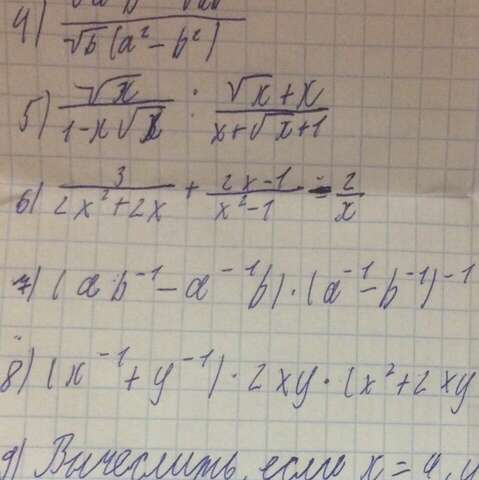 4)
√b (a² - b²)
5) √x / (1 - x√x) : (√x + x) / (x + √x + 1)
6) 3 / (2x² + 2x) + (2x - 1) / (x² - 1) = 2 / x
7) (ab⁻¹ - a⁻¹b) · (a⁻¹ - b⁻¹)⁻¹
8) (x⁻¹ + y⁻¹) · 2xy · (x² + 2xy
9) Вычеслить, если x = 4, y